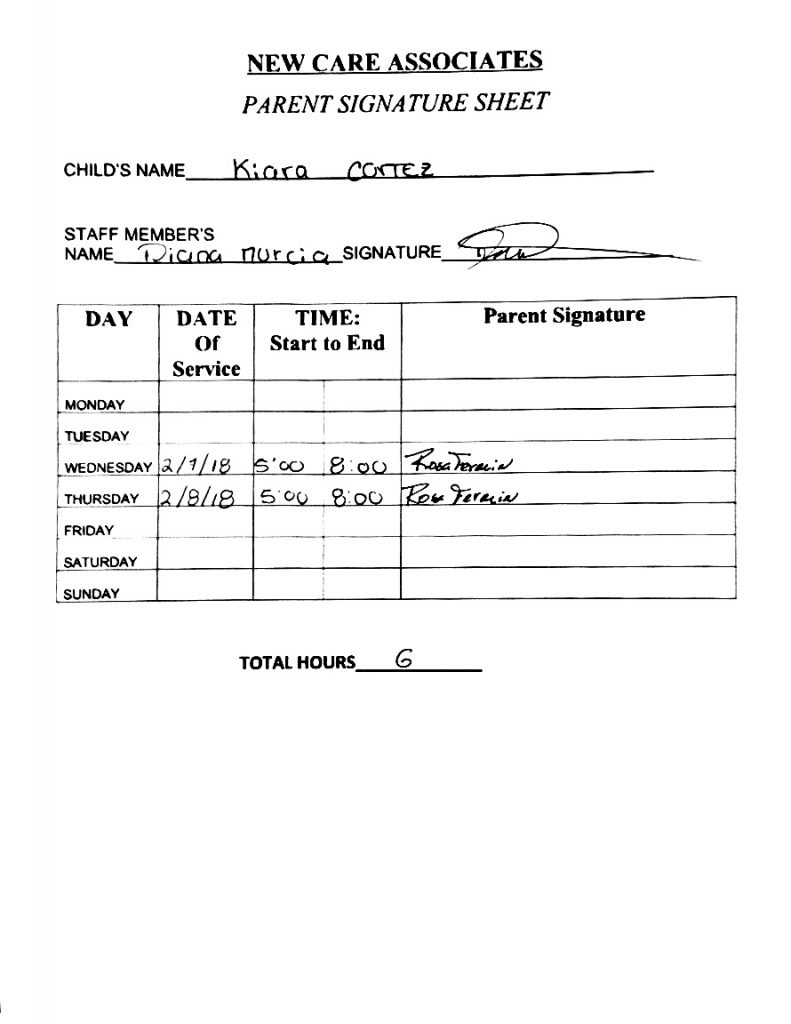 NEW CARE ASSOCIATES
PARENT SIGNATURE SHEET
CHILD'S NAME Kiara CORTEZ
STAFF MEMBER'S
NAME Diana Murcia SIGNATURE
DAY DATE Of Service TIME: Start to End Parent Signature
MONDAY
TUESDAY
WEDNESDAY 2/7/18 5:00 8:00 Rosa
THURSDAY 2/8/18 5:00 8:00 Rosa
FRIDAY
SATURDAY
SUNDAY
TOTAL HOURS 6